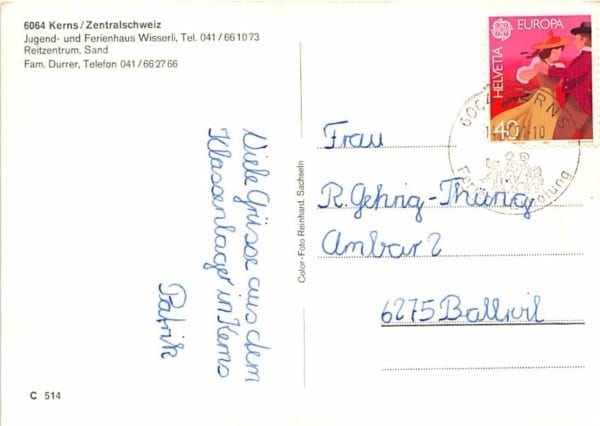 6064 Kerns/Zentralschweiz
Jugend- und Ferienhaus Wisserli, Tel. 041/66 10 73
Reitzentrum, Sand
Fam. Durrer, Telefon 041/66 27 66
Viele Grüsse aus dem
Klassenlager in Kerns
Patrik
Color-Foto Reinhard, Sachseln
C 514
EUROPA
HELVETIA
40
6064 KERNS
Frau
R. Gehrig-Thürig
Ambar 2
6275 Ballwil